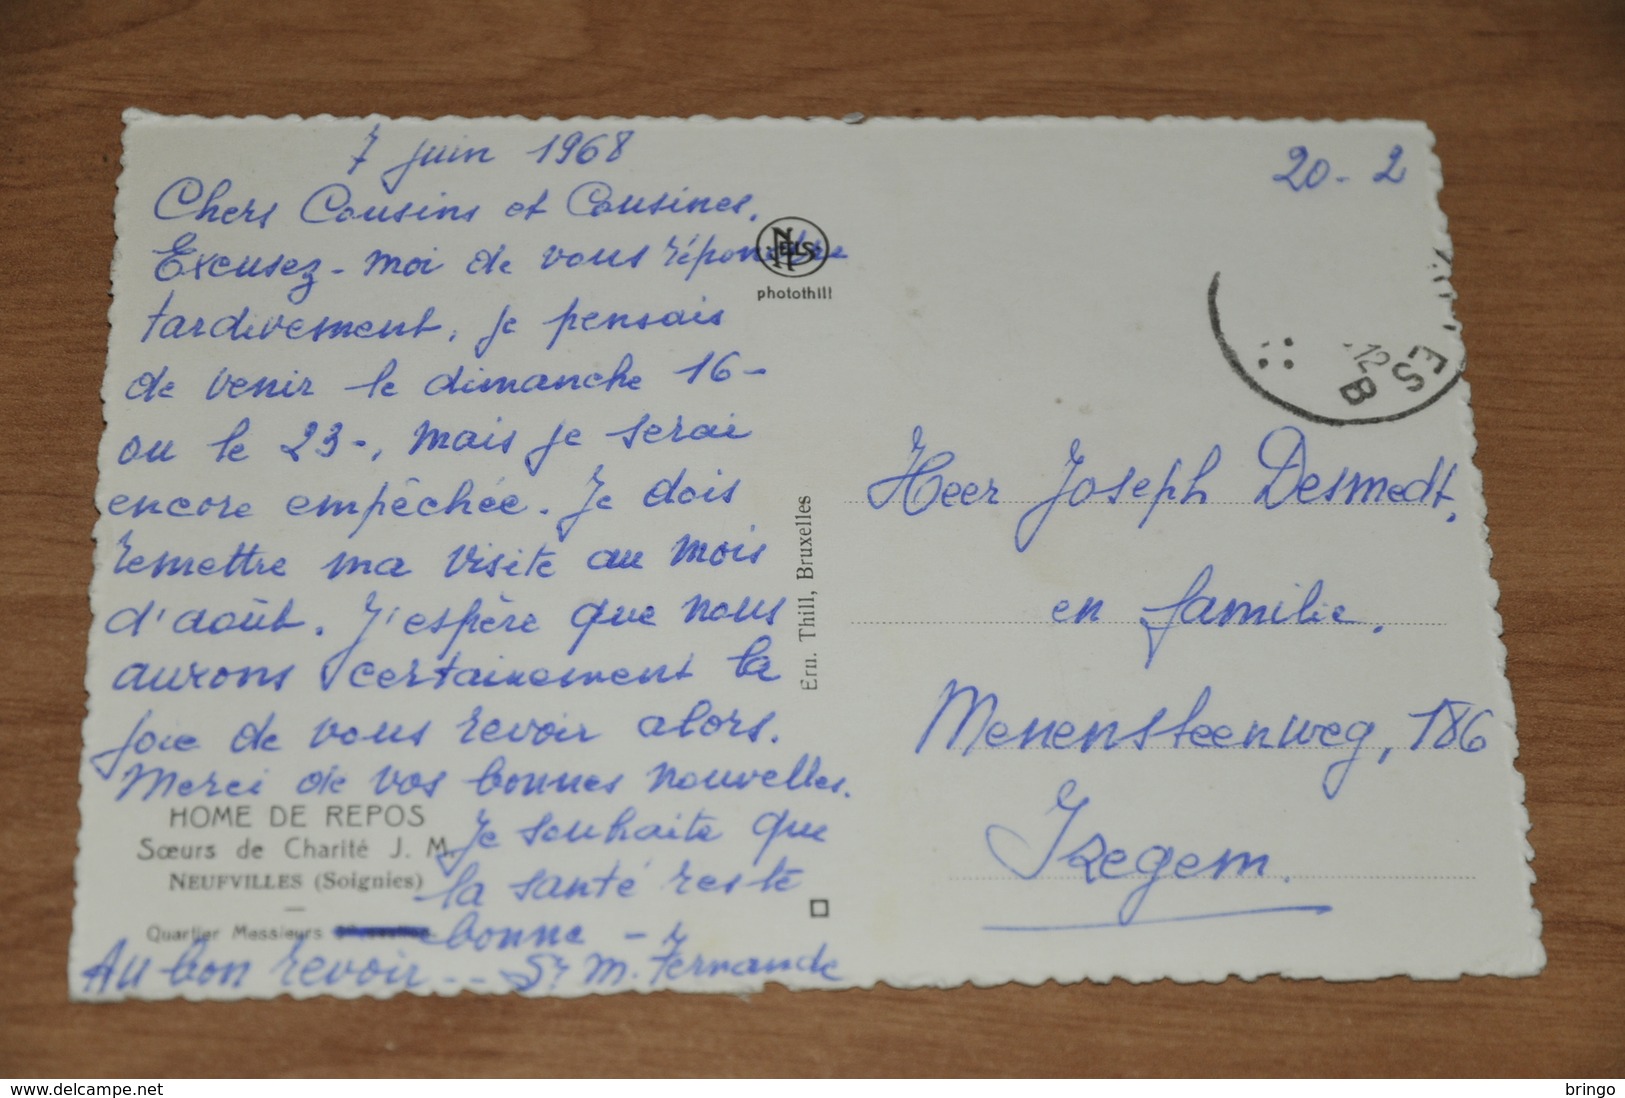 7 juin 1968
Chers Cousins et Cousines,
Excusez-moi de vous répondre
tardivement, je pensais
de venir le dimanche 16-
ou le 23-, mais je serai
encore empêchée. Je dois
remettre ma visite au mois
d'août. J'espère que nous
aurons certainement la
joie de vous revoir alors.
Merci de vos bonnes nouvelles.
Je souhaite que
la santé reste
bonne -
Au bon revoir -- Sr M. Fernande
HOME DE REPOS
Sœurs de Charité J. M.
NEUFVILLES (Soignies)
Quartier Messieurs
NELS
photothill
Ern. Thill, Bruxelles
20-2
ES
12
B
Heer Joseph Desmedt,
en familie,
Menensteenweg, 186
Izegem.
www.delcampe.net
bringo